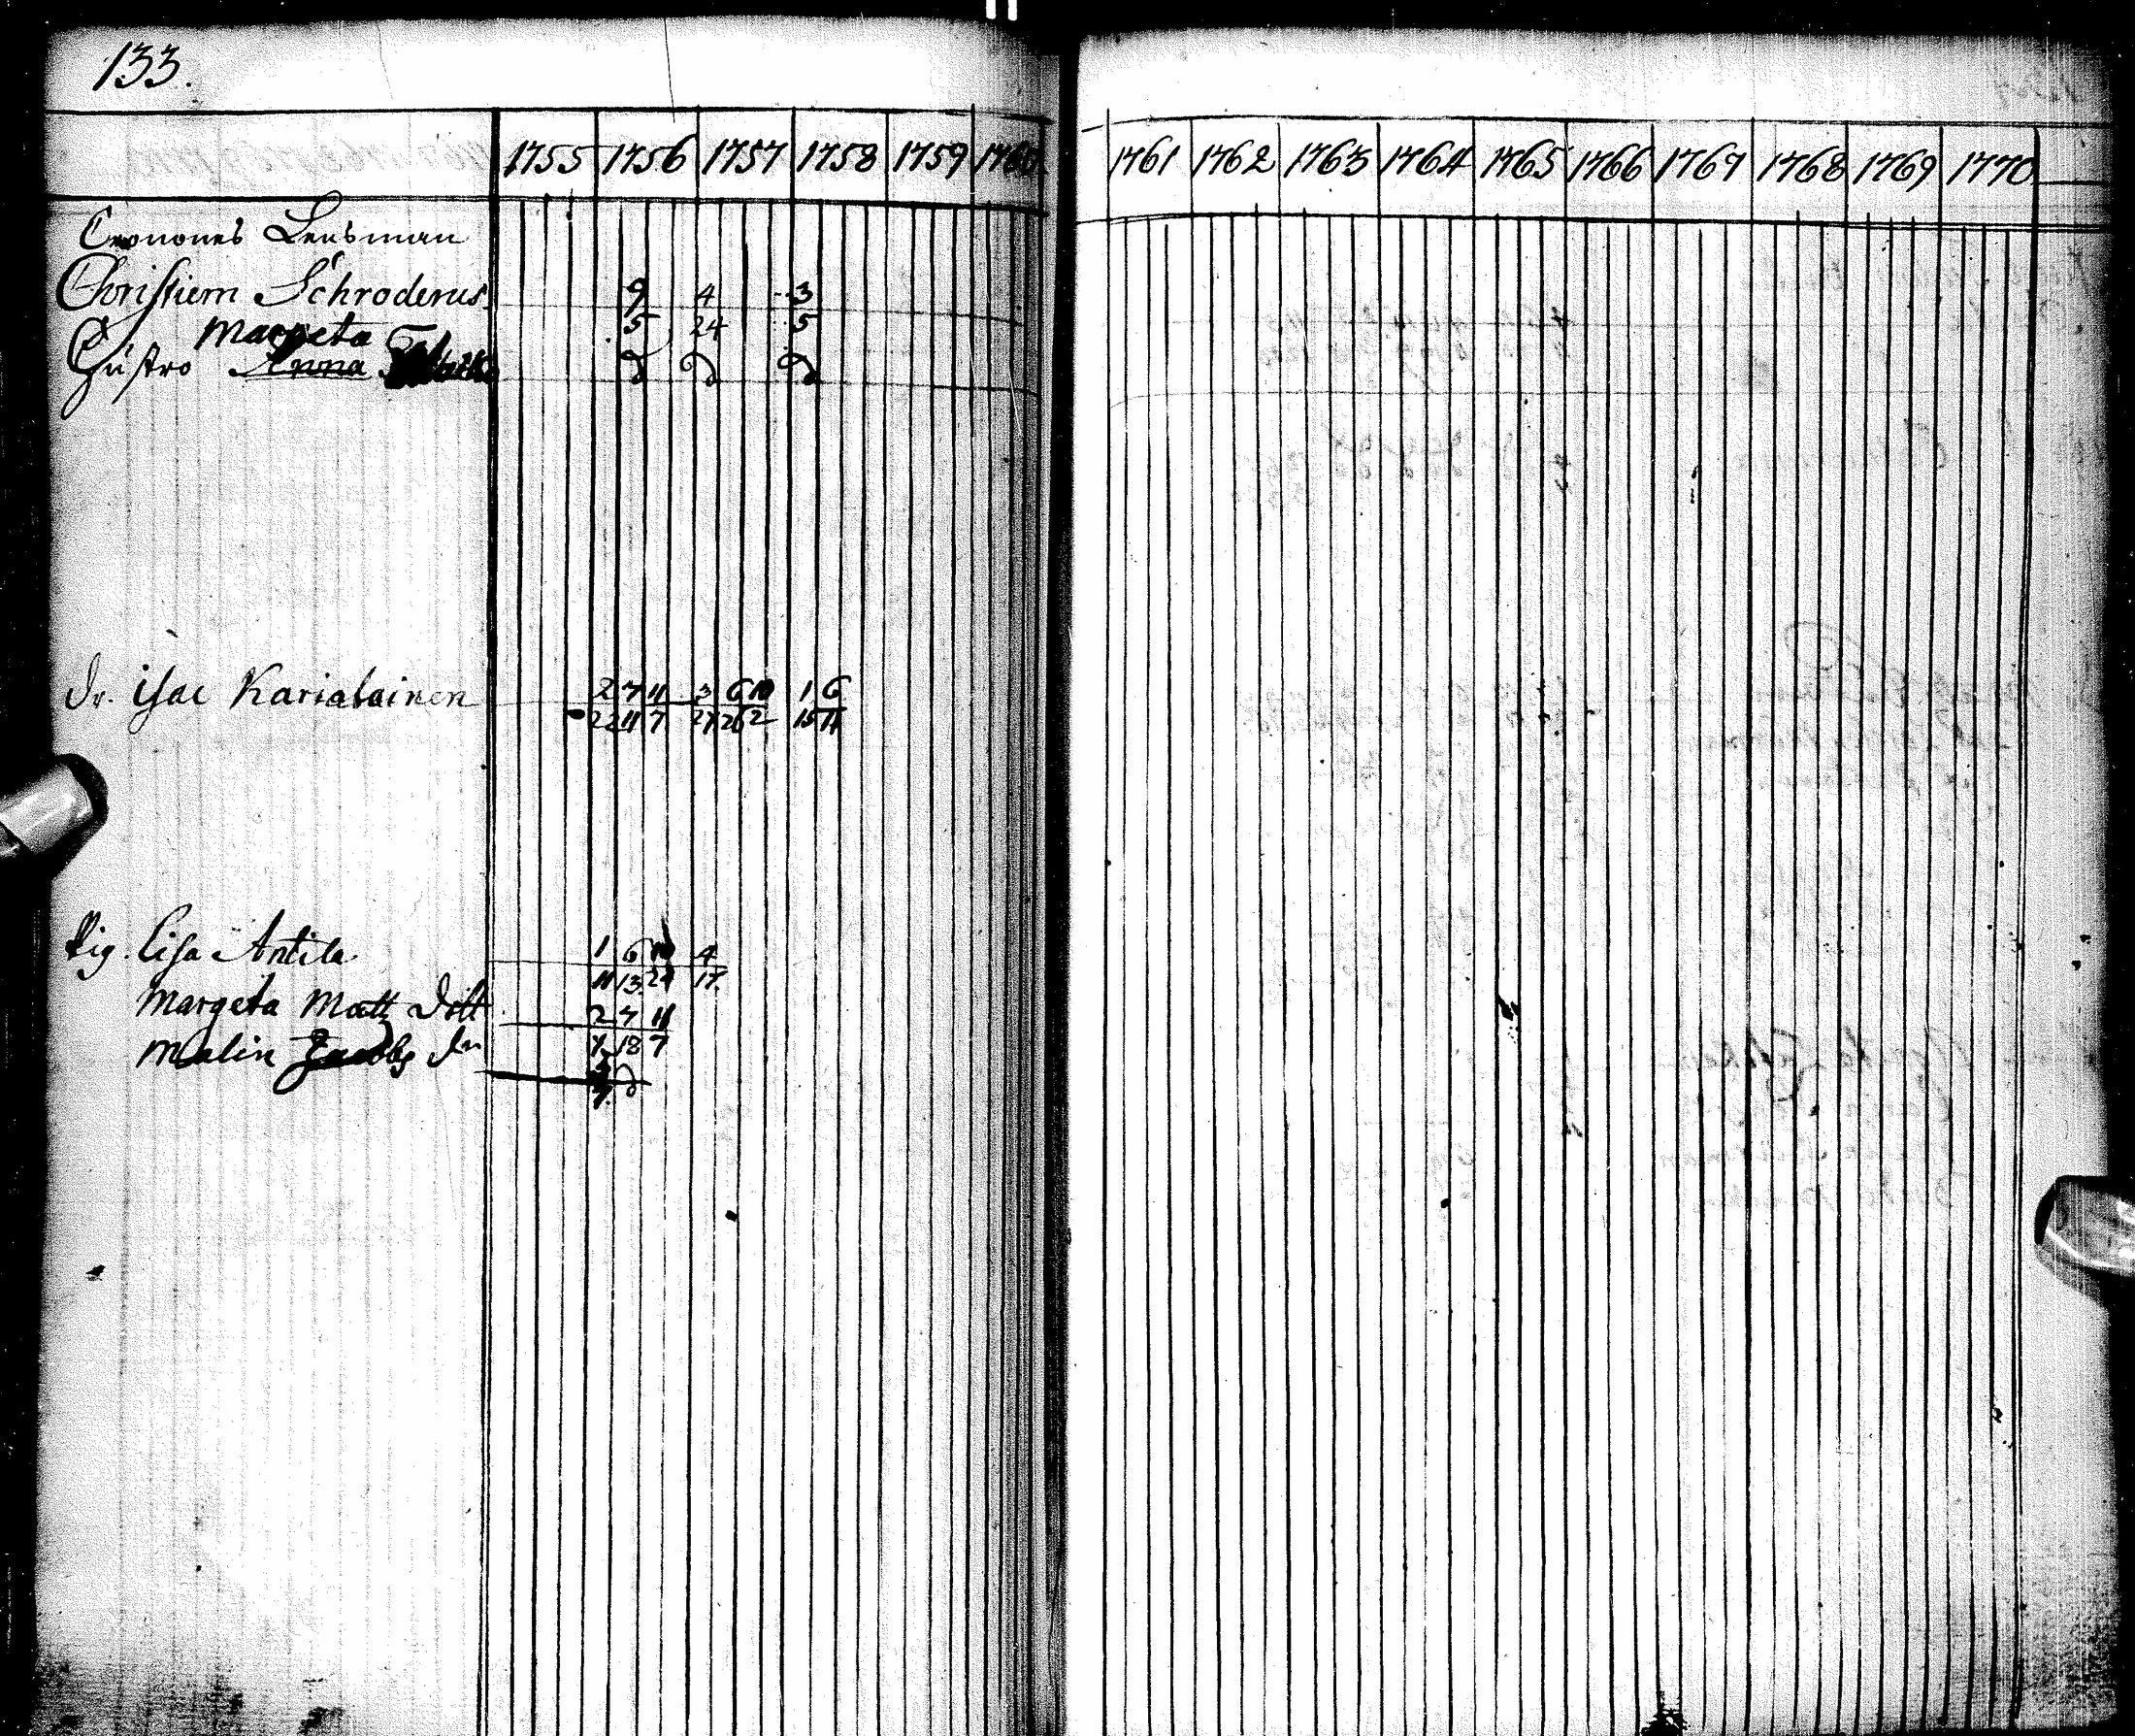 133.
1755 1756 1757 1758 1759 1760
1761 1762 1763 1764 1765 1766 1767 1768 1769 1770
Cronones Lensman
Christiern Schroderus 9 4 3
5 24 5
Margeta
Hustro Anna
Dr. Isac Karialainen 2 7 11 3 6 10 1 6
22 11 7 27 26 2 15 11
Pig. Lisa Antila 1 6 10 4
11 13 24 17.
Margeta Matts dott 2 7 11
7 18 7
Malin Jacobs dr